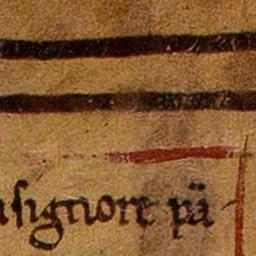 signore pā